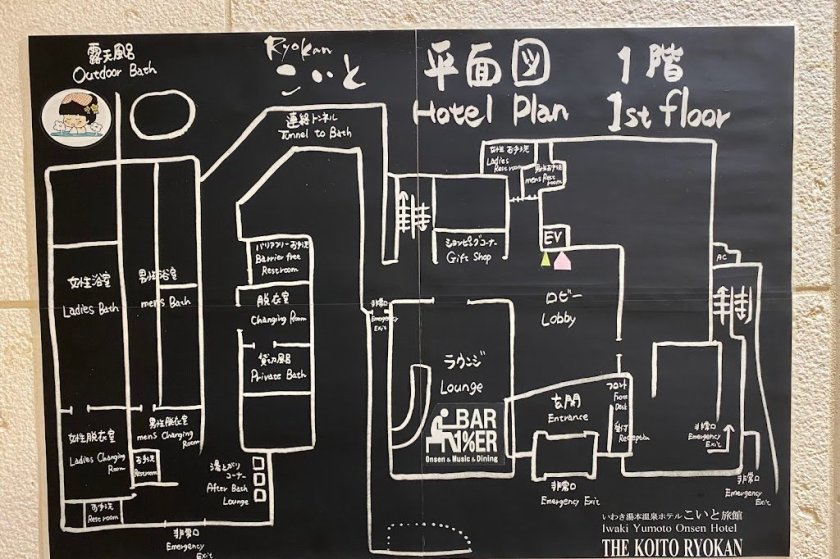 露天風呂
Outdoor Bath
Ryokan
こいと
平面図
Hotel Plan
1階
1st floor
連絡トンネル
Tunnel to Bath
女性お手洗
Ladies
Restroom
男性お手洗
mens Rest
room
ショッピングコーナー
Gift Shop
EV
AC
バリアフリーお手洗
Barrier free
Restroom
女性浴室
Ladies Bath
男性浴室
mens Bath
脱衣室
Changing Room
非常口
Emergency
Exit
ロビー
Lobby
貸切風呂
Private Bath
ラウンジ
Lounge
玄関
Entrance
フロント
Front
Desk
受付
Reception
BAR
1%ER
Onsen & Music & Dining
女性脱衣室
Ladies Changing
Room
男性脱衣室
mens Changing
Room
お手洗
Restroom
お手洗
Restroom
湯上がり
コーナー
After Bath
Lounge
非常口
Emergency
Exit
非常口
Emergency Exit
非常口
Emergency
Exit
非常口
Emergency
Exit
いわき湯本温泉ホテル こいと旅館
Iwaki Yumoto Onsen Hotel
THE KOITO RYOKAN